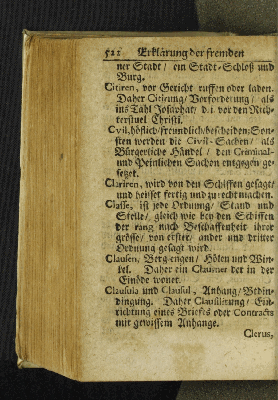 522 Erklärung der fremden
ner Stadt / ein Stadt-Schloß und
Burg.
Citiren, vor Gericht ruffen oder laden.
Daher Citirung / Vorforderung / als
ins Tahl Josaphat / d.i. vor den Rich-
terstuel Christi.
Civil, höflich / freundlich / bescheiden: Son-
sten werden die Civil-Sachen / als
Bürgerliche Händel / den Criminal-
und Peinlichen Sachen entgegen ge-
setzet.
Clariren, wird von den Schiffen gesagt /
und heisset fertig und zu recht machen.
Classe, ist jede Ordnung / Stand und
Stelle / gleich wie bey den Schiffen
der rang nach Beschaffenheit ihrer
grösse / von erster / ander und dritter
Ordnung gesagt wird.
Clausen, Berg-engen / Hölen und Win-
kel. Daher ein Clausner der in der
Einöde wonet.
Clausula und Clausul, Anhang / Bedin-
dingung. Daher Clausulirung / Ein-
richtung eines Briefes oder Contracts
mit gewissem Anhange.
Clerus,